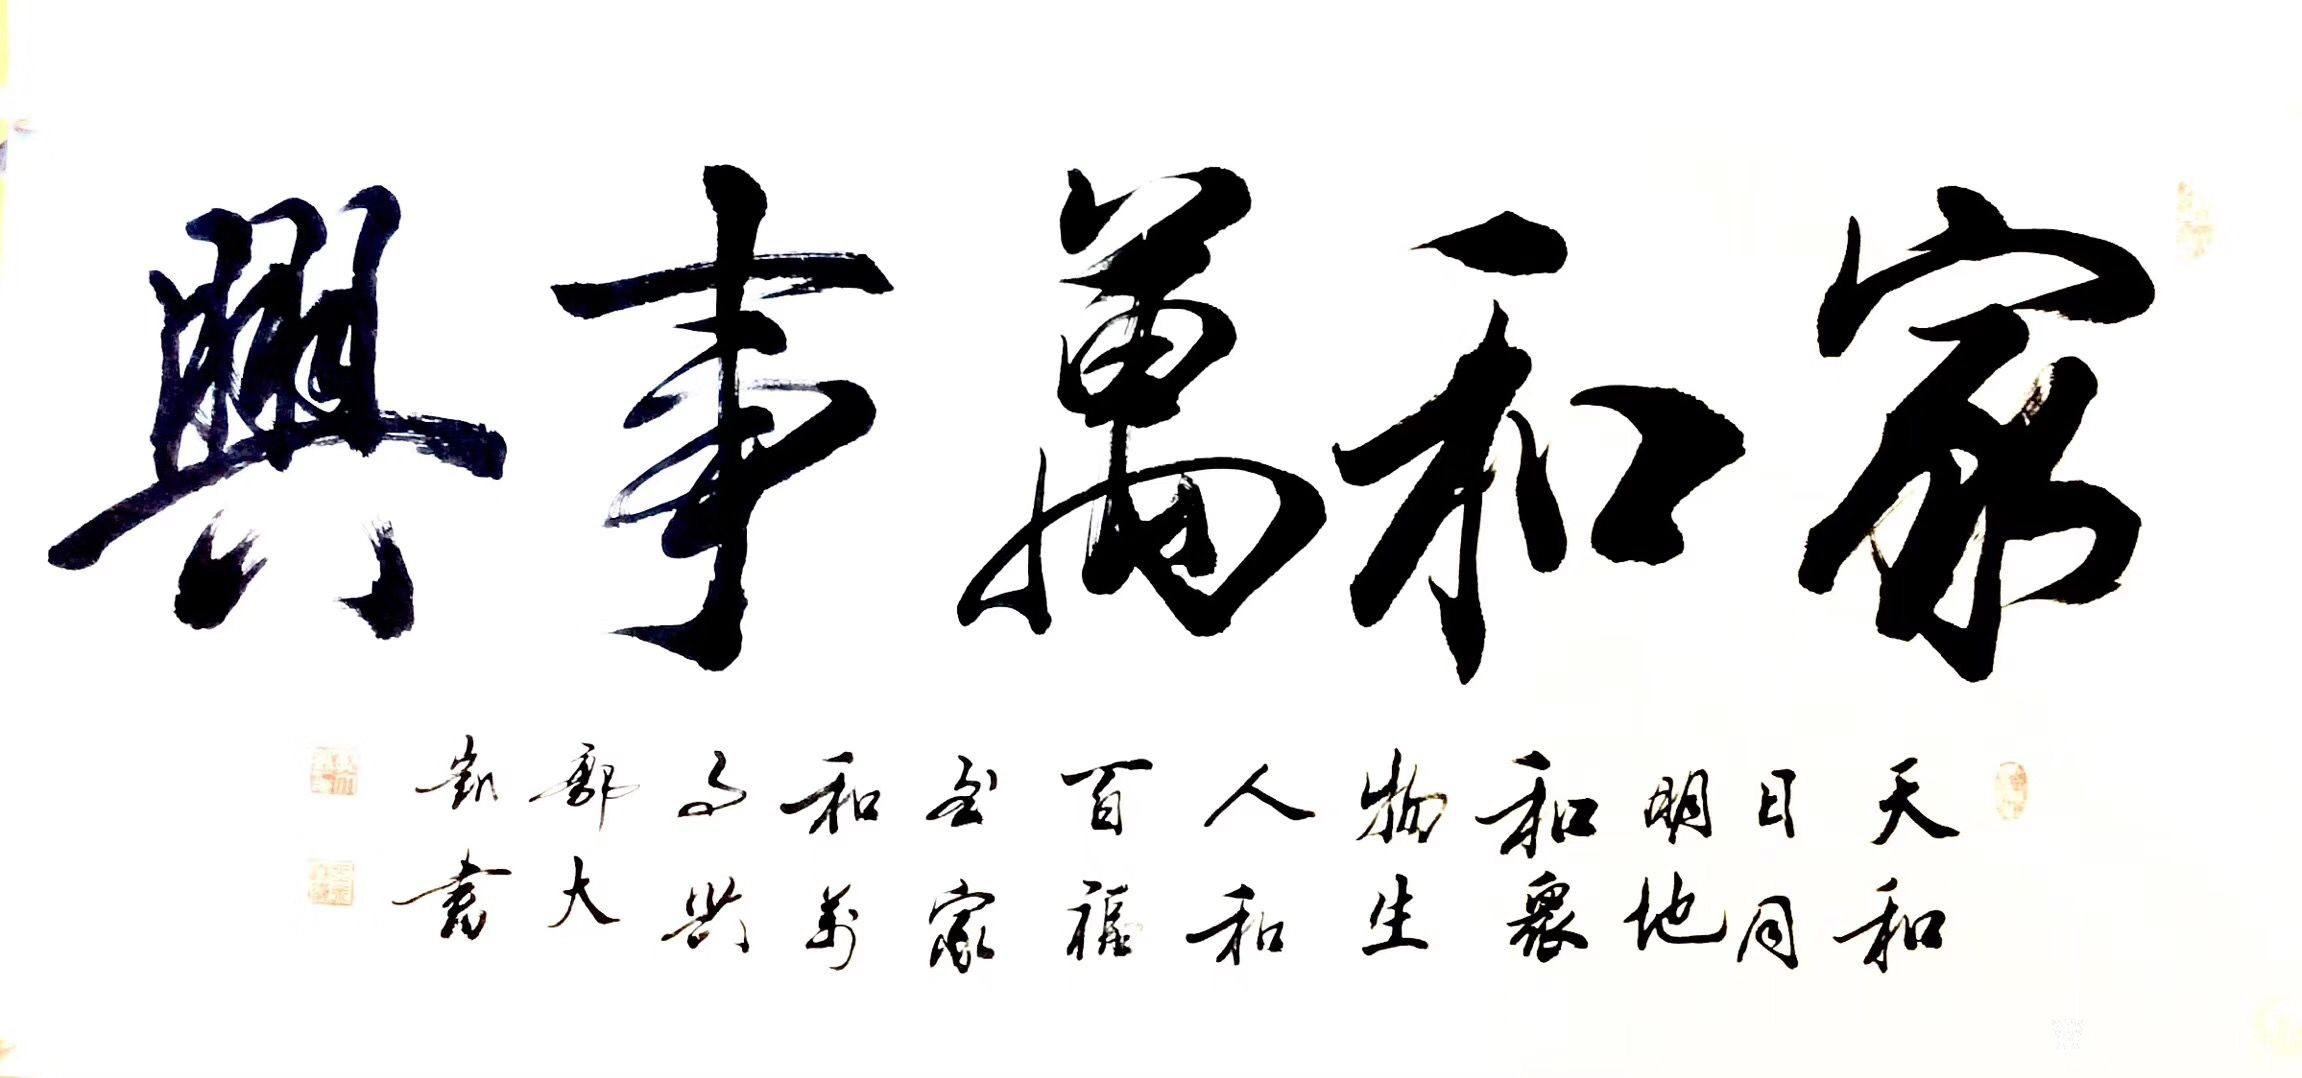 家和萬事興
天和
日月
明地
和眾
物生
人和
百福
至家
和萬
事興
郭大
書